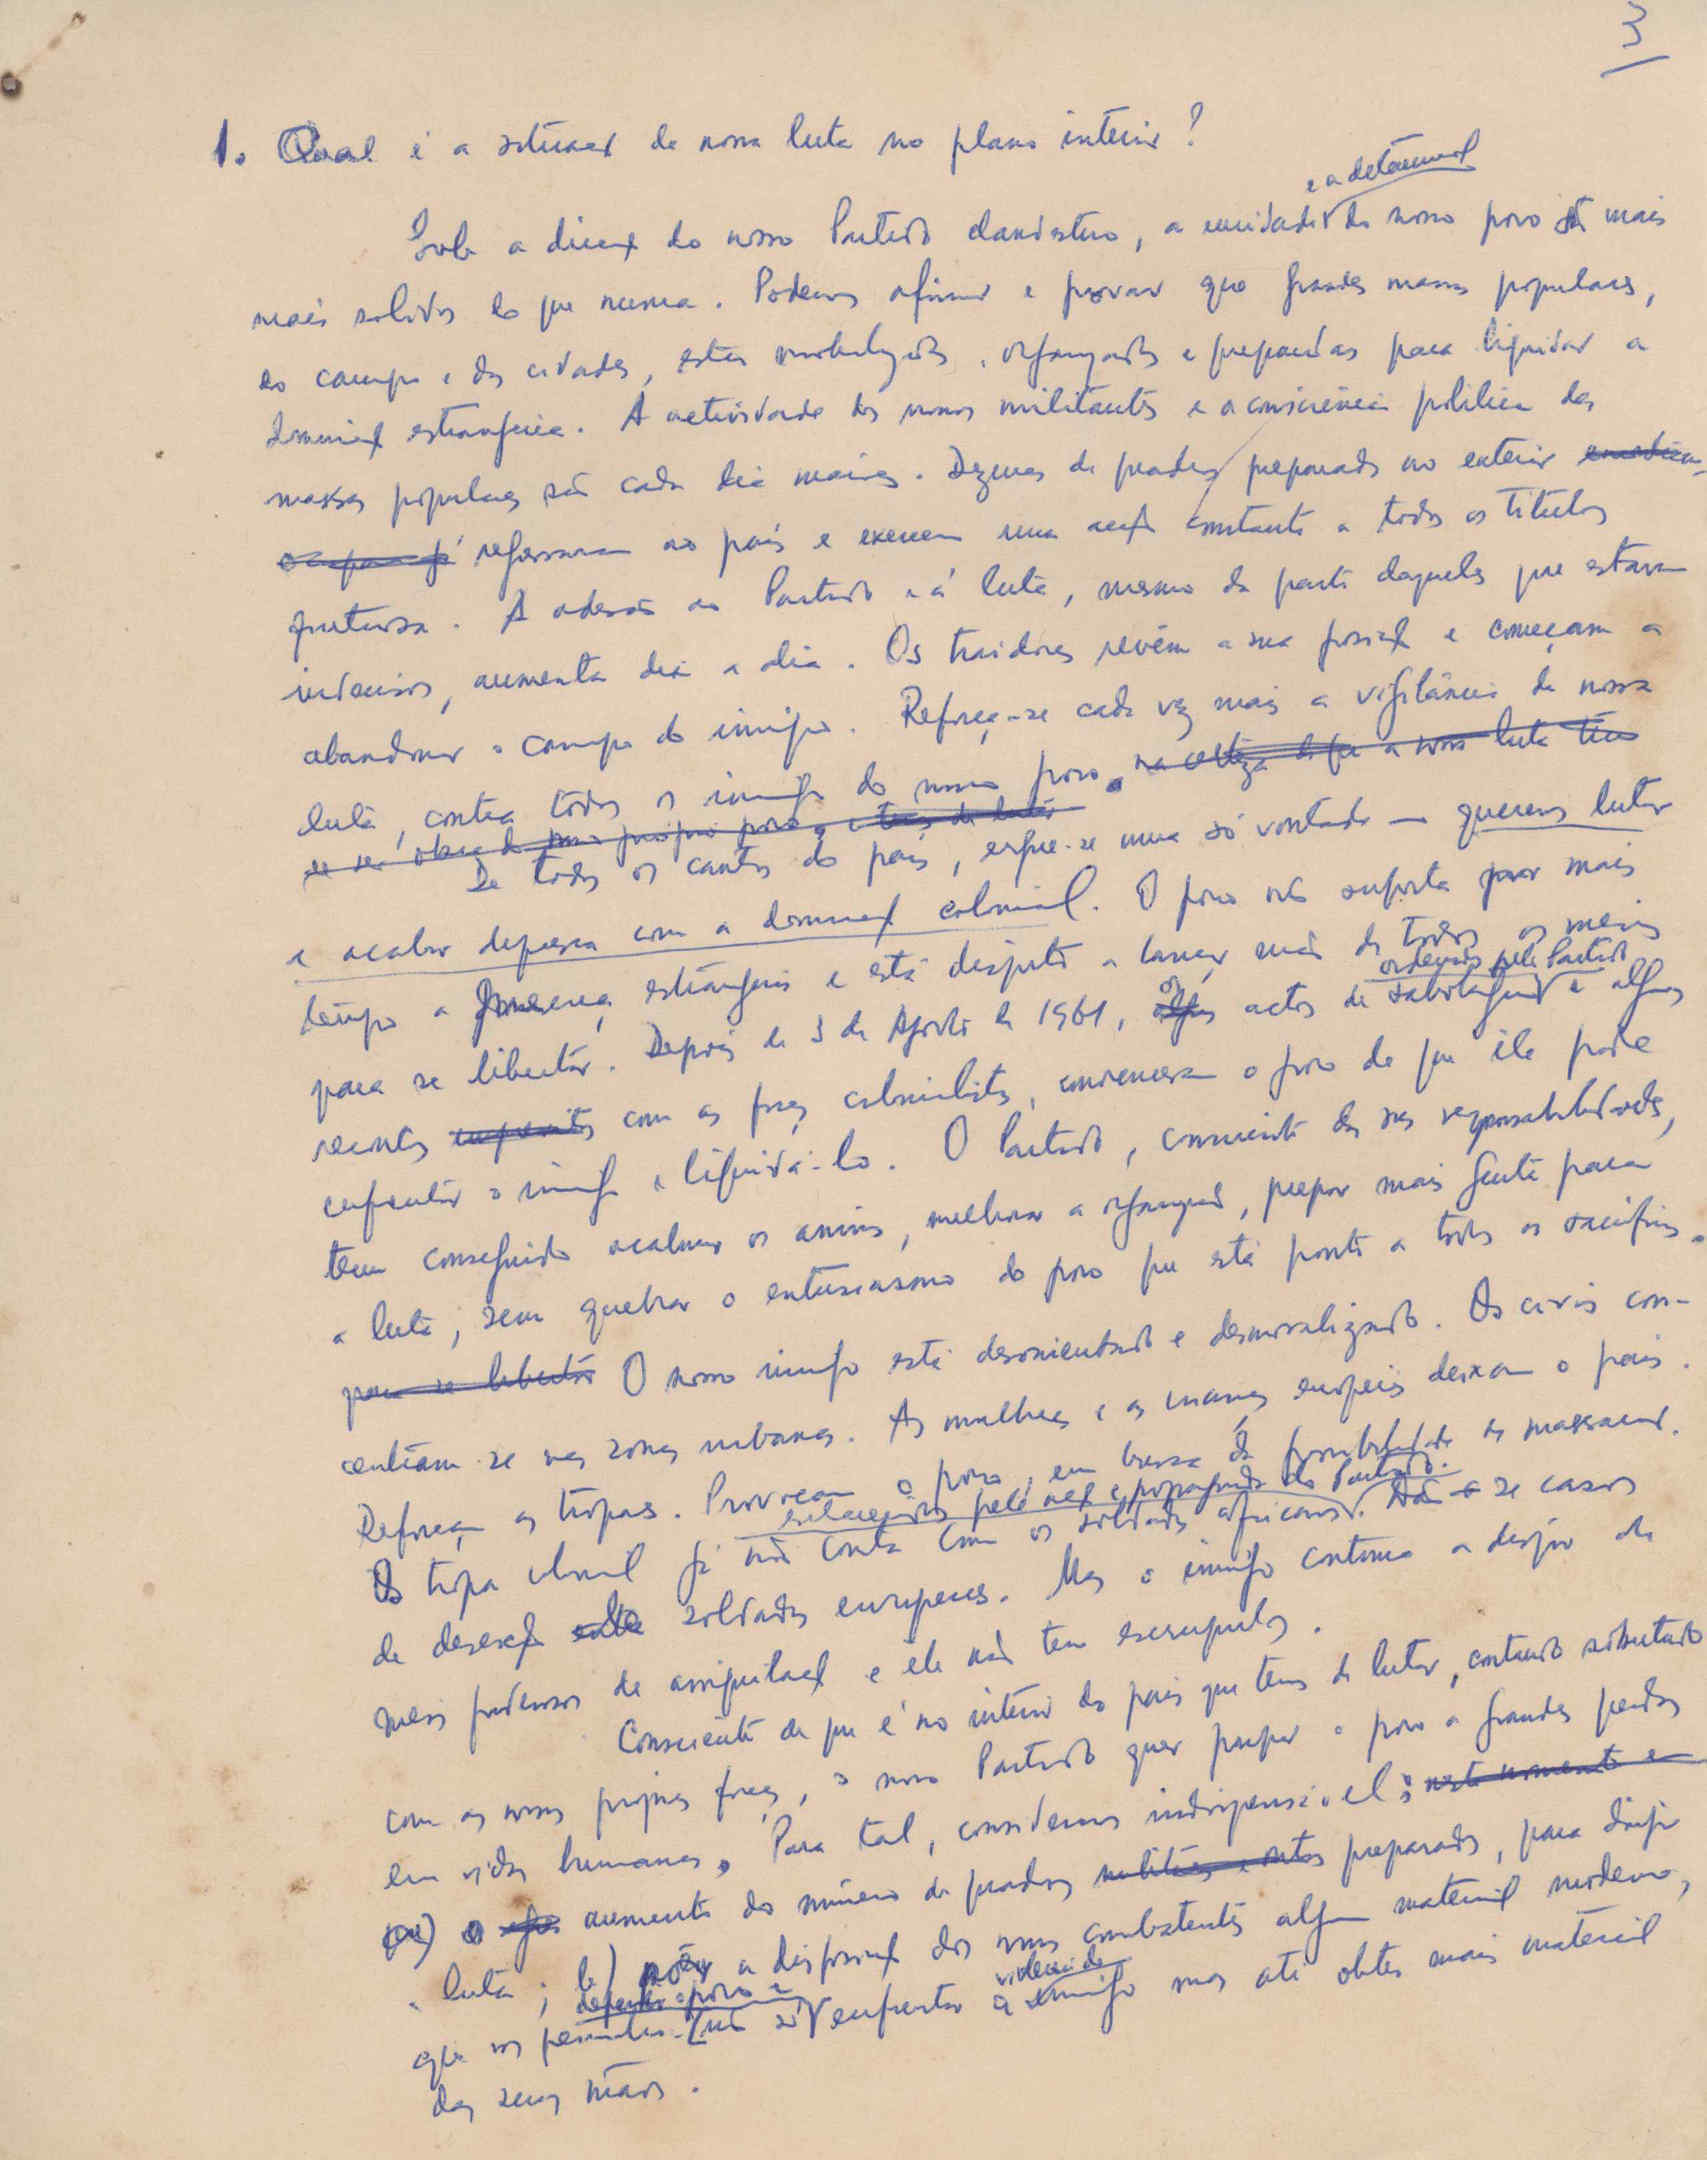 3
1. Qual é a situação da nossa luta no plano interior?
e a determinação
Sob a direcção do nosso Partido clandestino, a unidade do nosso povo são mais
mais solidos do que nunca. Podemos afirmar e provar que grandes massas populares,
do campo e das cidades, estão mobilizadas, organizadas e preparadas para liquidar a
dominação estrangeira. A actividade dos nossos militantes e a consciência politica das
massas populares são cada dia maiores. Dezenas de quadros preparados no exterior
regressaram ao país e exercem uma acção constante a todos os titulos
frutuosa. A adesão ao Partido e á luta, mesmo da parte daqueles que estavam
indecisos, aumenta dia a dia. Os traidores revêm a sua posição e começam a
abandonar o campo do inimigo. Reforça-se cada vez mais a vigilância da nossa
luta, contra todos os inimigos do nosso povo. na certeza de que a nossa luta tem
de ser obra do nosso próprio povo
De todos os cantos do país, ergue-se uma só vontade — queremos lutar
e acabar depressa com a dominação colonial. O povo não suporta por mais
tempo a presença estrangeira e está disposto a lançar mão de todos os meios
ordenados pelo Partido
para se libertar. Depois de 3 de Agosto de 1961, os actos de sabotagem e alguns
recontros com as forças colonialistas, convenceram o povo de que ele pode
enfrentar o inimigo e liquidá-lo. O Partido, consciente das suas responsabilidades,
tem conseguido acalmar os animos, melhorar a organização, preparar mais gente para
a luta, sem quebrar o entusiasmo do povo que está pronto a todos os sacrificios.
para se libertar O nosso inimigo está desorientado e desmoralizado. Os civis con-
centram-se nas zonas urbanas. As mulheres e as crianças europeias deixam o país.
Reforçam as tropas. Provocam o povo, em busca da possibilidade de massacrar.
esclarecidos pela acção e propaganda do Partido.
Os tropa colonial já não conta com os soldados africanos. Dão-se casos
de deserção entre soldados europeus. Mas o inimigo continua a dispor de
meios poderosos de aniquilação e ele não tem escrupulos.
Consciente de que é no interior do país que temos de lutar, contando sobretudo
com as nossas próprias forças, o nosso Partido quer poupar o povo a grandes perdas
em vidas humanas. Para tal, consideramos indispensável: neste momento
a) o aumento do número de quadros preparados, para dirigir
a luta; b) pôr a disposição dos nossos combatentes algum material moderno,
defender o povo e
violencia do
que nos permita não só enfrentar o inimigo mas até obter mais material
das suas mãos.